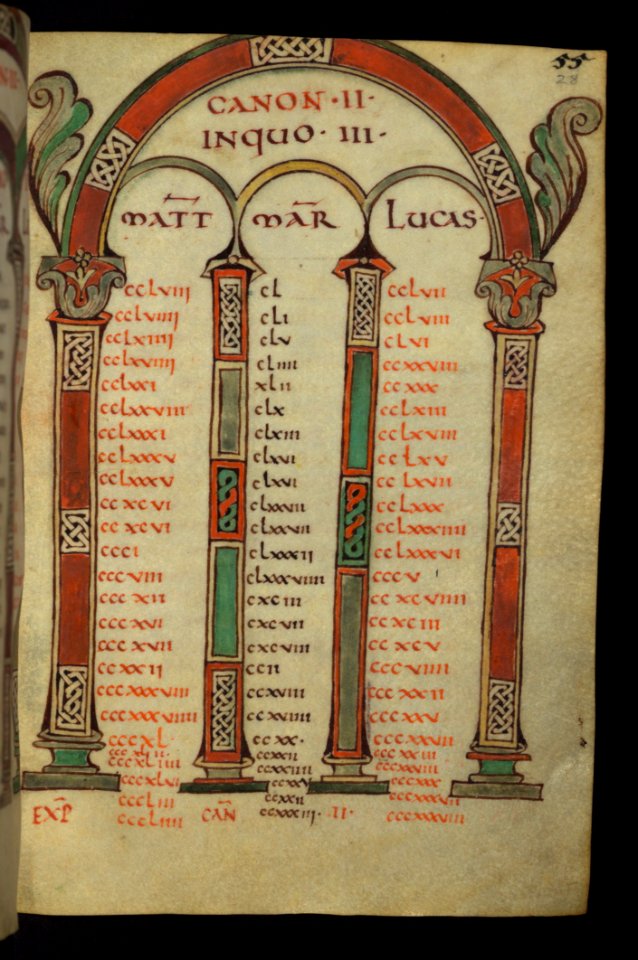 28
CANON·II·
INQUO·III·
MATT MAR LUCAS·
cclviii cl cclvii
cclviiii cli cclviii
cclxiiii clv clvi
cclxviiii cliiii ccxxviii
cclxxi xlii ccxxx
cclxxviii clx cclxiii
cclxxxi clxiii cclxviii
cclxxxv clxvi cclxv
cclxxxv clxvi cclxvii
ccxcvi clxxvii cclxxx
ccxcvi clxxvii cclxxxiiii
ccci clxxxii cclxxxvi
cccviii clxxxviiii cccv
cccxii cxciii ccxcviiii
cccxvi cxcvii ccxciii
cccxvii cxcviii ccxcv
ccxxii ccii cccviiii
cccxxxviii ccxviii cccxxii
cccxxxviiii ccxviiii cccxxv
cccxl ccxx· cccxxvii
cccxlii ccxxii cccxxiii
cccxliiii ccxxiiii cccxxviii
cccxlvi ccxxv cccxxx
cccliii ccxxii cccxxxvii
cccliiii ccxxxiii· cccxxxviii
EXP CAN ·II·